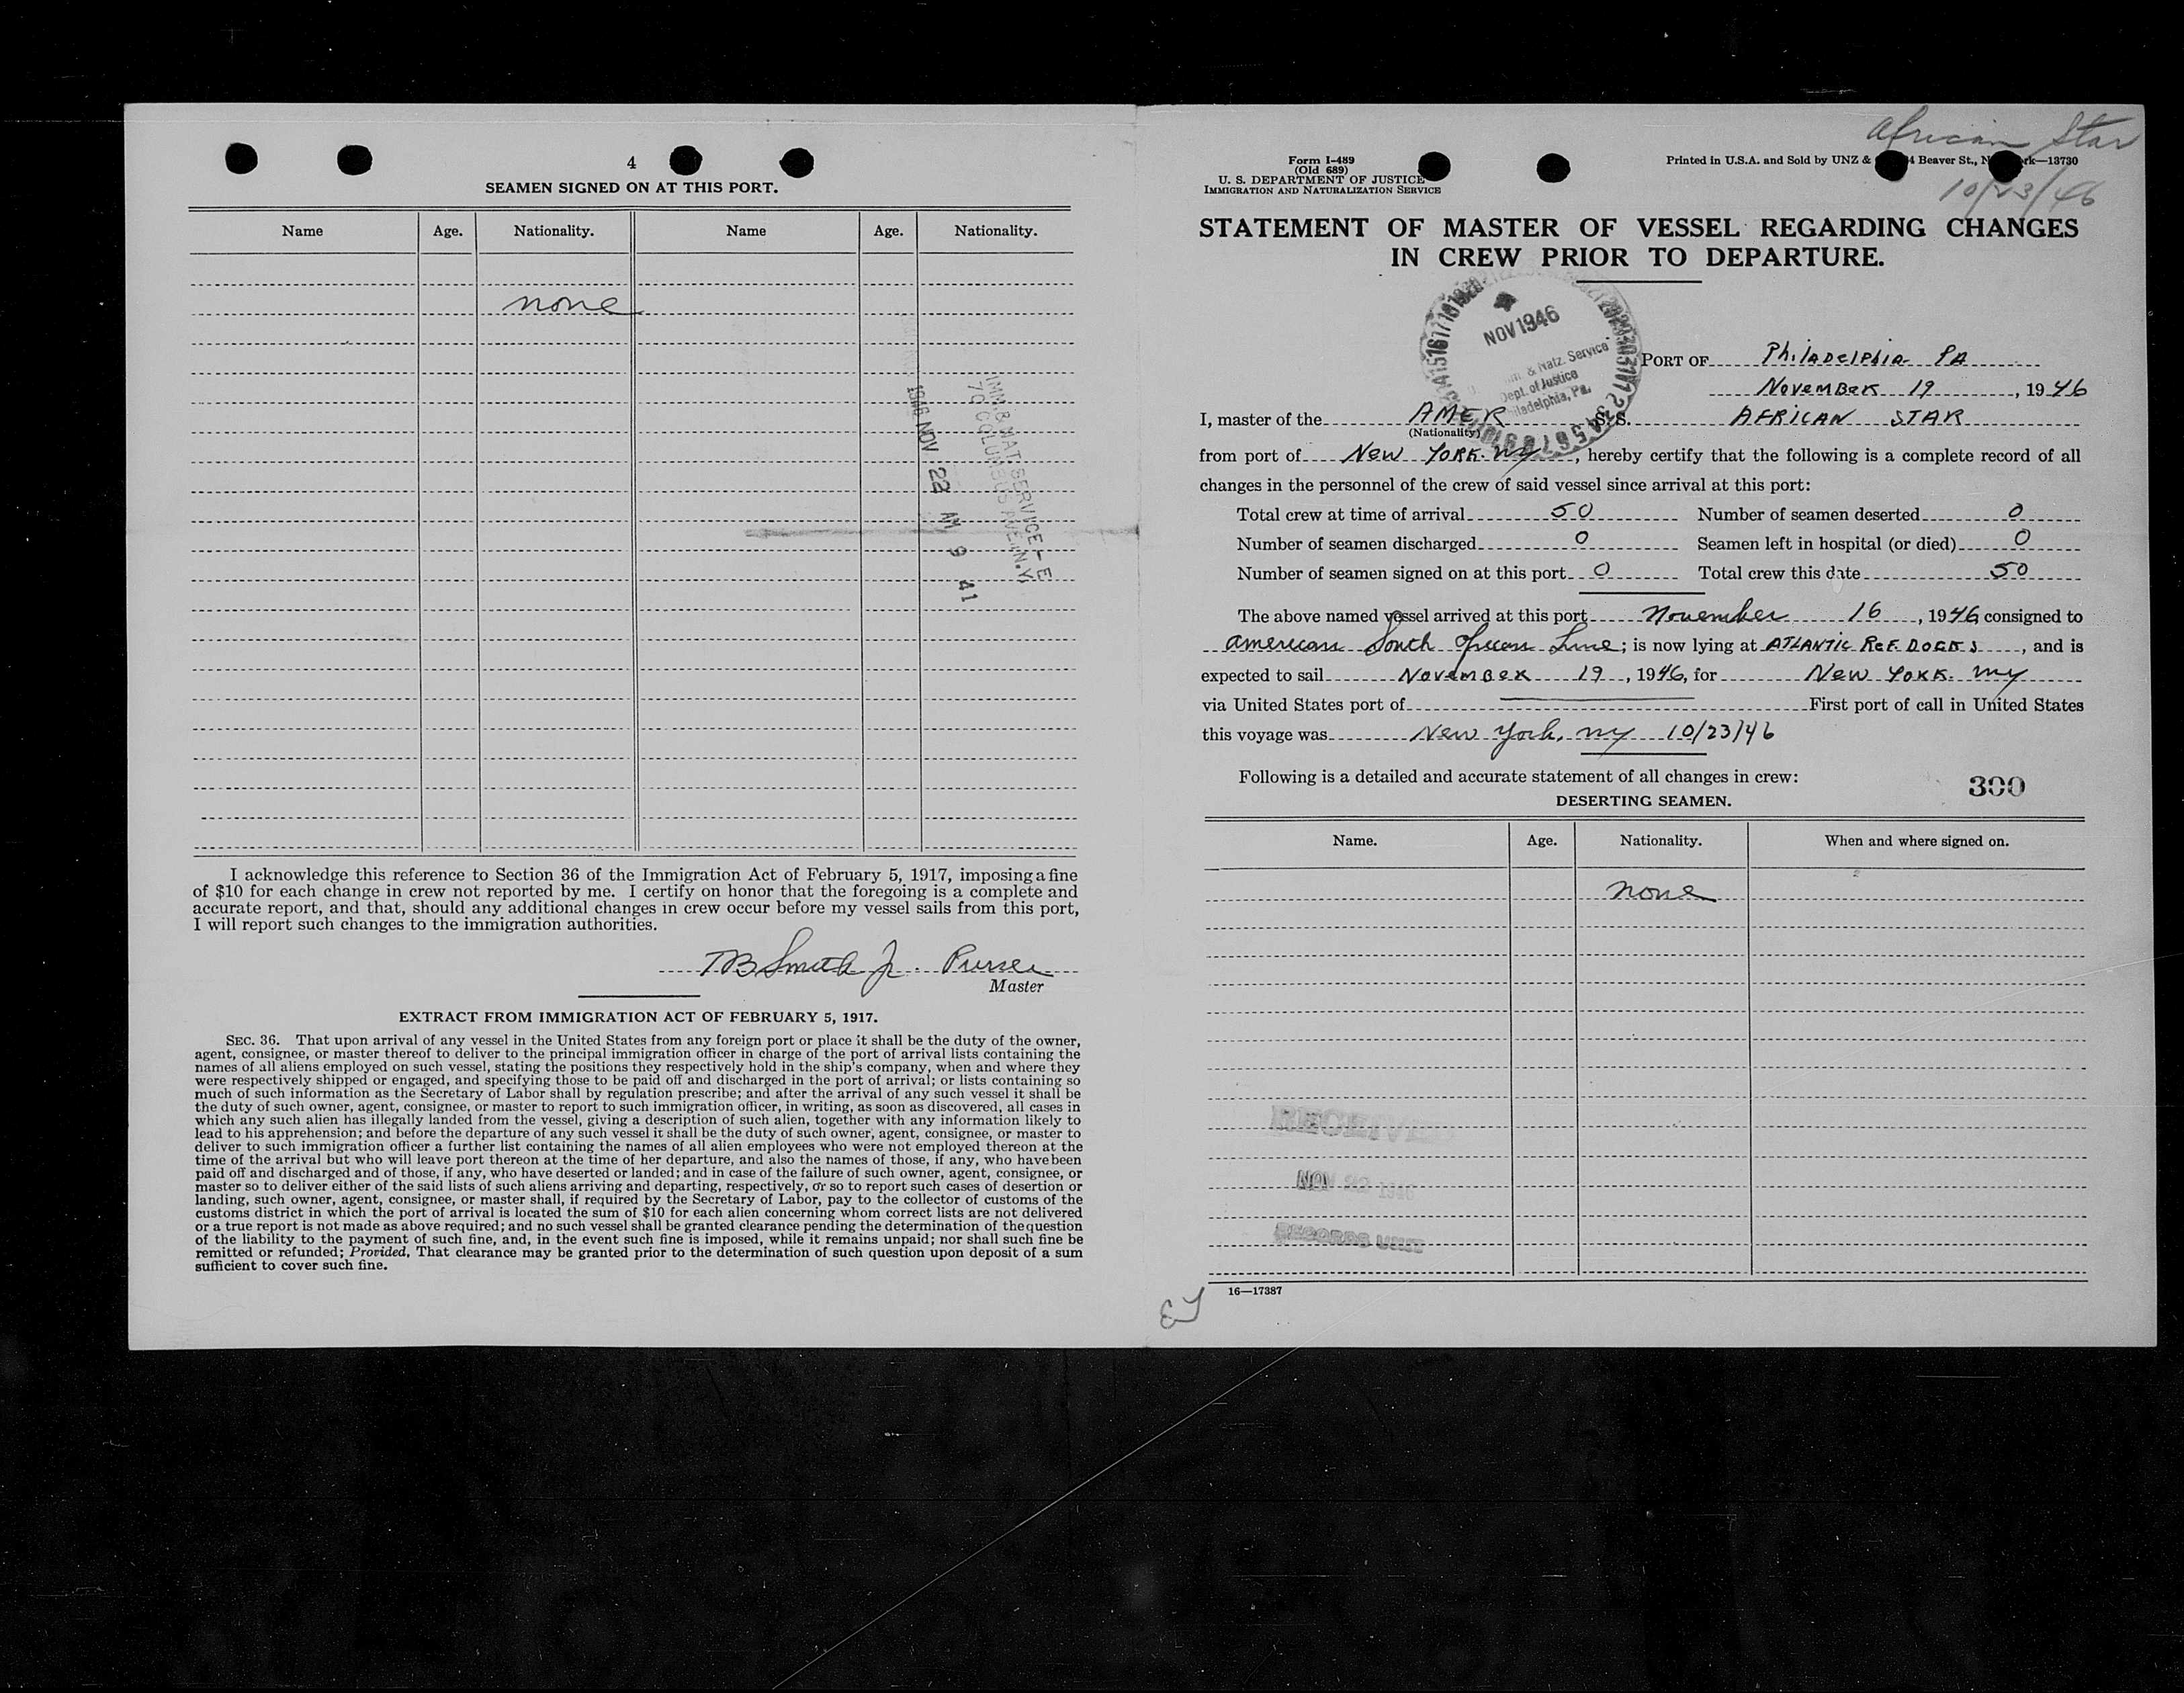 4
SEAMEN SIGNED ON AT THIS PORT.
Name Age. Nationality. Name Age. Nationality.
none
IMM. & NAT. SERVICE - E
70 COLUMBUS AVE., N.Y.
1946 NOV 22 AM 9 41
I acknowledge this reference to Section 36 of the Immigration Act of February 5, 1917, imposing a fine
of $10 for each change in crew not reported by me. I certify on honor that the foregoing is a complete and
accurate report, and that, should any additional changes in crew occur before my vessel sails from this port,
I will report such changes to the immigration authorities.
TB Smith Jr. Purser
Master
EXTRACT FROM IMMIGRATION ACT OF FEBRUARY 5, 1917.
SEC. 36. That upon arrival of any vessel in the United States from any foreign port or place it shall be the duty of the owner,
agent, consignee, or master thereof to deliver to the principal immigration officer in charge of the port of arrival lists containing the
names of all aliens employed on such vessel, stating the positions they respectively hold in the ship's company, when and where they
were respectively shipped or engaged, and specifying those to be paid off and discharged in the port of arrival; or lists containing so
much of such information as the Secretary of Labor shall by regulation prescribe; and after the arrival of any such vessel it shall be
the duty of such owner, agent, consignee, or master to report to such immigration officer, in writing, as soon as discovered, all cases in
which any such alien has illegally landed from the vessel, giving a description of such alien, together with any information likely to
lead to his apprehension; and before the departure of any such vessel it shall be the duty of such owner, agent, consignee, or master to
deliver to such immigration officer a further list containing the names of all alien employees who were not employed thereon at the
time of the arrival but who will leave port thereon at the time of her departure, and also the names of those, if any, who have been
paid off and discharged and of those, if any, who have deserted or landed; and in case of the failure of such owner, agent, consignee, or
master so to deliver either of the said lists of such aliens arriving and departing, respectively, or so to report such cases of desertion or
landing, such owner, agent, consignee, or master shall, if required by the Secretary of Labor, pay to the collector of customs of the
customs district in which the port of arrival is located the sum of $10 for each alien concerning whom correct lists are not delivered
or a true report is not made as above required; and no such vessel shall be granted clearance pending the determination of the question
of the liability to the payment of such fine, and, in the event such fine is imposed, while it remains unpaid; nor shall such fine be
remitted or refunded; Provided, That clearance may be granted prior to the determination of such question upon deposit of a sum
sufficient to cover such fine.
African Star
10/23/46
Form I-489
(Old 689)
U. S. DEPARTMENT OF JUSTICE
IMMIGRATION AND NATURALIZATION SERVICE
Printed in U.S.A. and Sold by UNZ & 4 Beaver St., N rk—13730
STATEMENT OF MASTER OF VESSEL REGARDING CHANGES
IN CREW PRIOR TO DEPARTURE.
NOV 1946
& Natz. Service
Dept. of Justice
Philadelphia, Pa.
PORT OF Philadelphia PA
November 19, 1946
I, master of the AMER S.S. AFRICAN STAR
(Nationality)
from port of New York NY, hereby certify that the following is a complete record of all
changes in the personnel of the crew of said vessel since arrival at this port:
Total crew at time of arrival 50 Number of seamen deserted 0
Number of seamen discharged 0 Seamen left in hospital (or died) 0
Number of seamen signed on at this port 0 Total crew this date 50
The above named vessel arrived at this port November 16, 1946 consigned to
American South African Line; is now lying at ATLANTIC REF. DOCKS, and is
expected to sail November 19, 1946, for New York. NY
via United States port of First port of call in United States
this voyage was New York, NY 10/23/46
Following is a detailed and accurate statement of all changes in crew:
300
DESERTING SEAMEN.
Name. Age. Nationality. When and where signed on.
none
RECEIVED
NOV 22 1946
RECORDS UNIT
16—17387